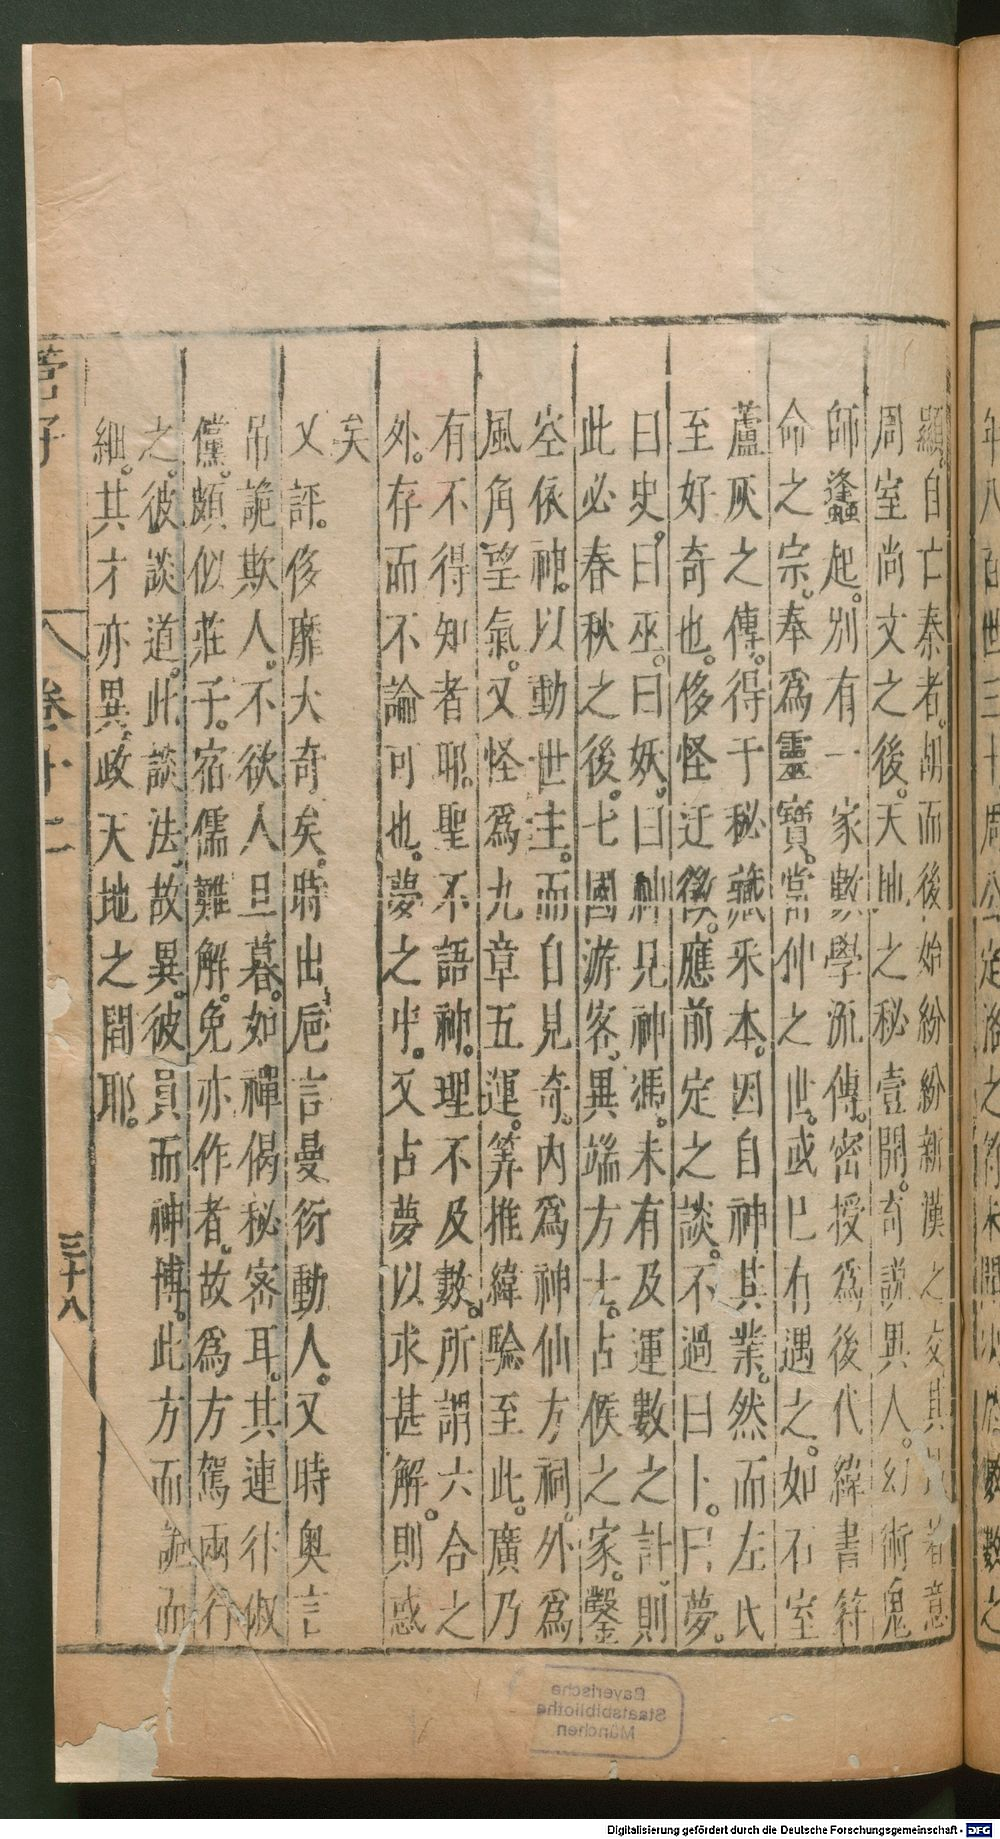 顯自亡秦者胡而後始紛紛新漢之交其
周室尚文之後。天地之秘壹開。奇説異人。幻術鬼
師。蠭起。別有一家數學流傳。密授爲後代緯書符
命之宗。奉爲靈寶。當仲之世。或已有遇之。如石室
蘆灰之傳。得于秘藏釆本。因自神其業。然而左氏
至好奇也。侈怪迂徵。應前定之談。不過曰卜。曰夢。
曰史。曰巫。曰妖。曰神見神馮。未有及運數之計。則
此必春秋之後。七國游客。異端方士。占候之家。鑿
空依神。以動世主。而自見奇。内爲神仙方祠。外爲
風角望氣。又怪爲九章五運。筭推緯驗至此。廣乃
有不得知者耶。聖不語神。理不及數。所謂六合之
外。存而不論可也。夢之中。又占夢以求甚解。則惑
矣
又評。侈靡大奇矣。時出巵言曼衍動人。又時奥言
吊詭欺人。不欲人旦暮。如禪偈秘密耳。其連犿俶
儻。頗似莊子。宿儒難解。免亦作者。故爲方駕兩行
之。彼談道。此談法。故異。彼員而神博。此方而詭而
細。其才亦異。政天地之間耶。
管子
卷十二
三十八
年八百世三十周公定洛之
數之
Bayerische
Staatsbibliothek
München
Digitalisierung gefördert durch die Deutsche Forschungsgemeinschaft - DFG